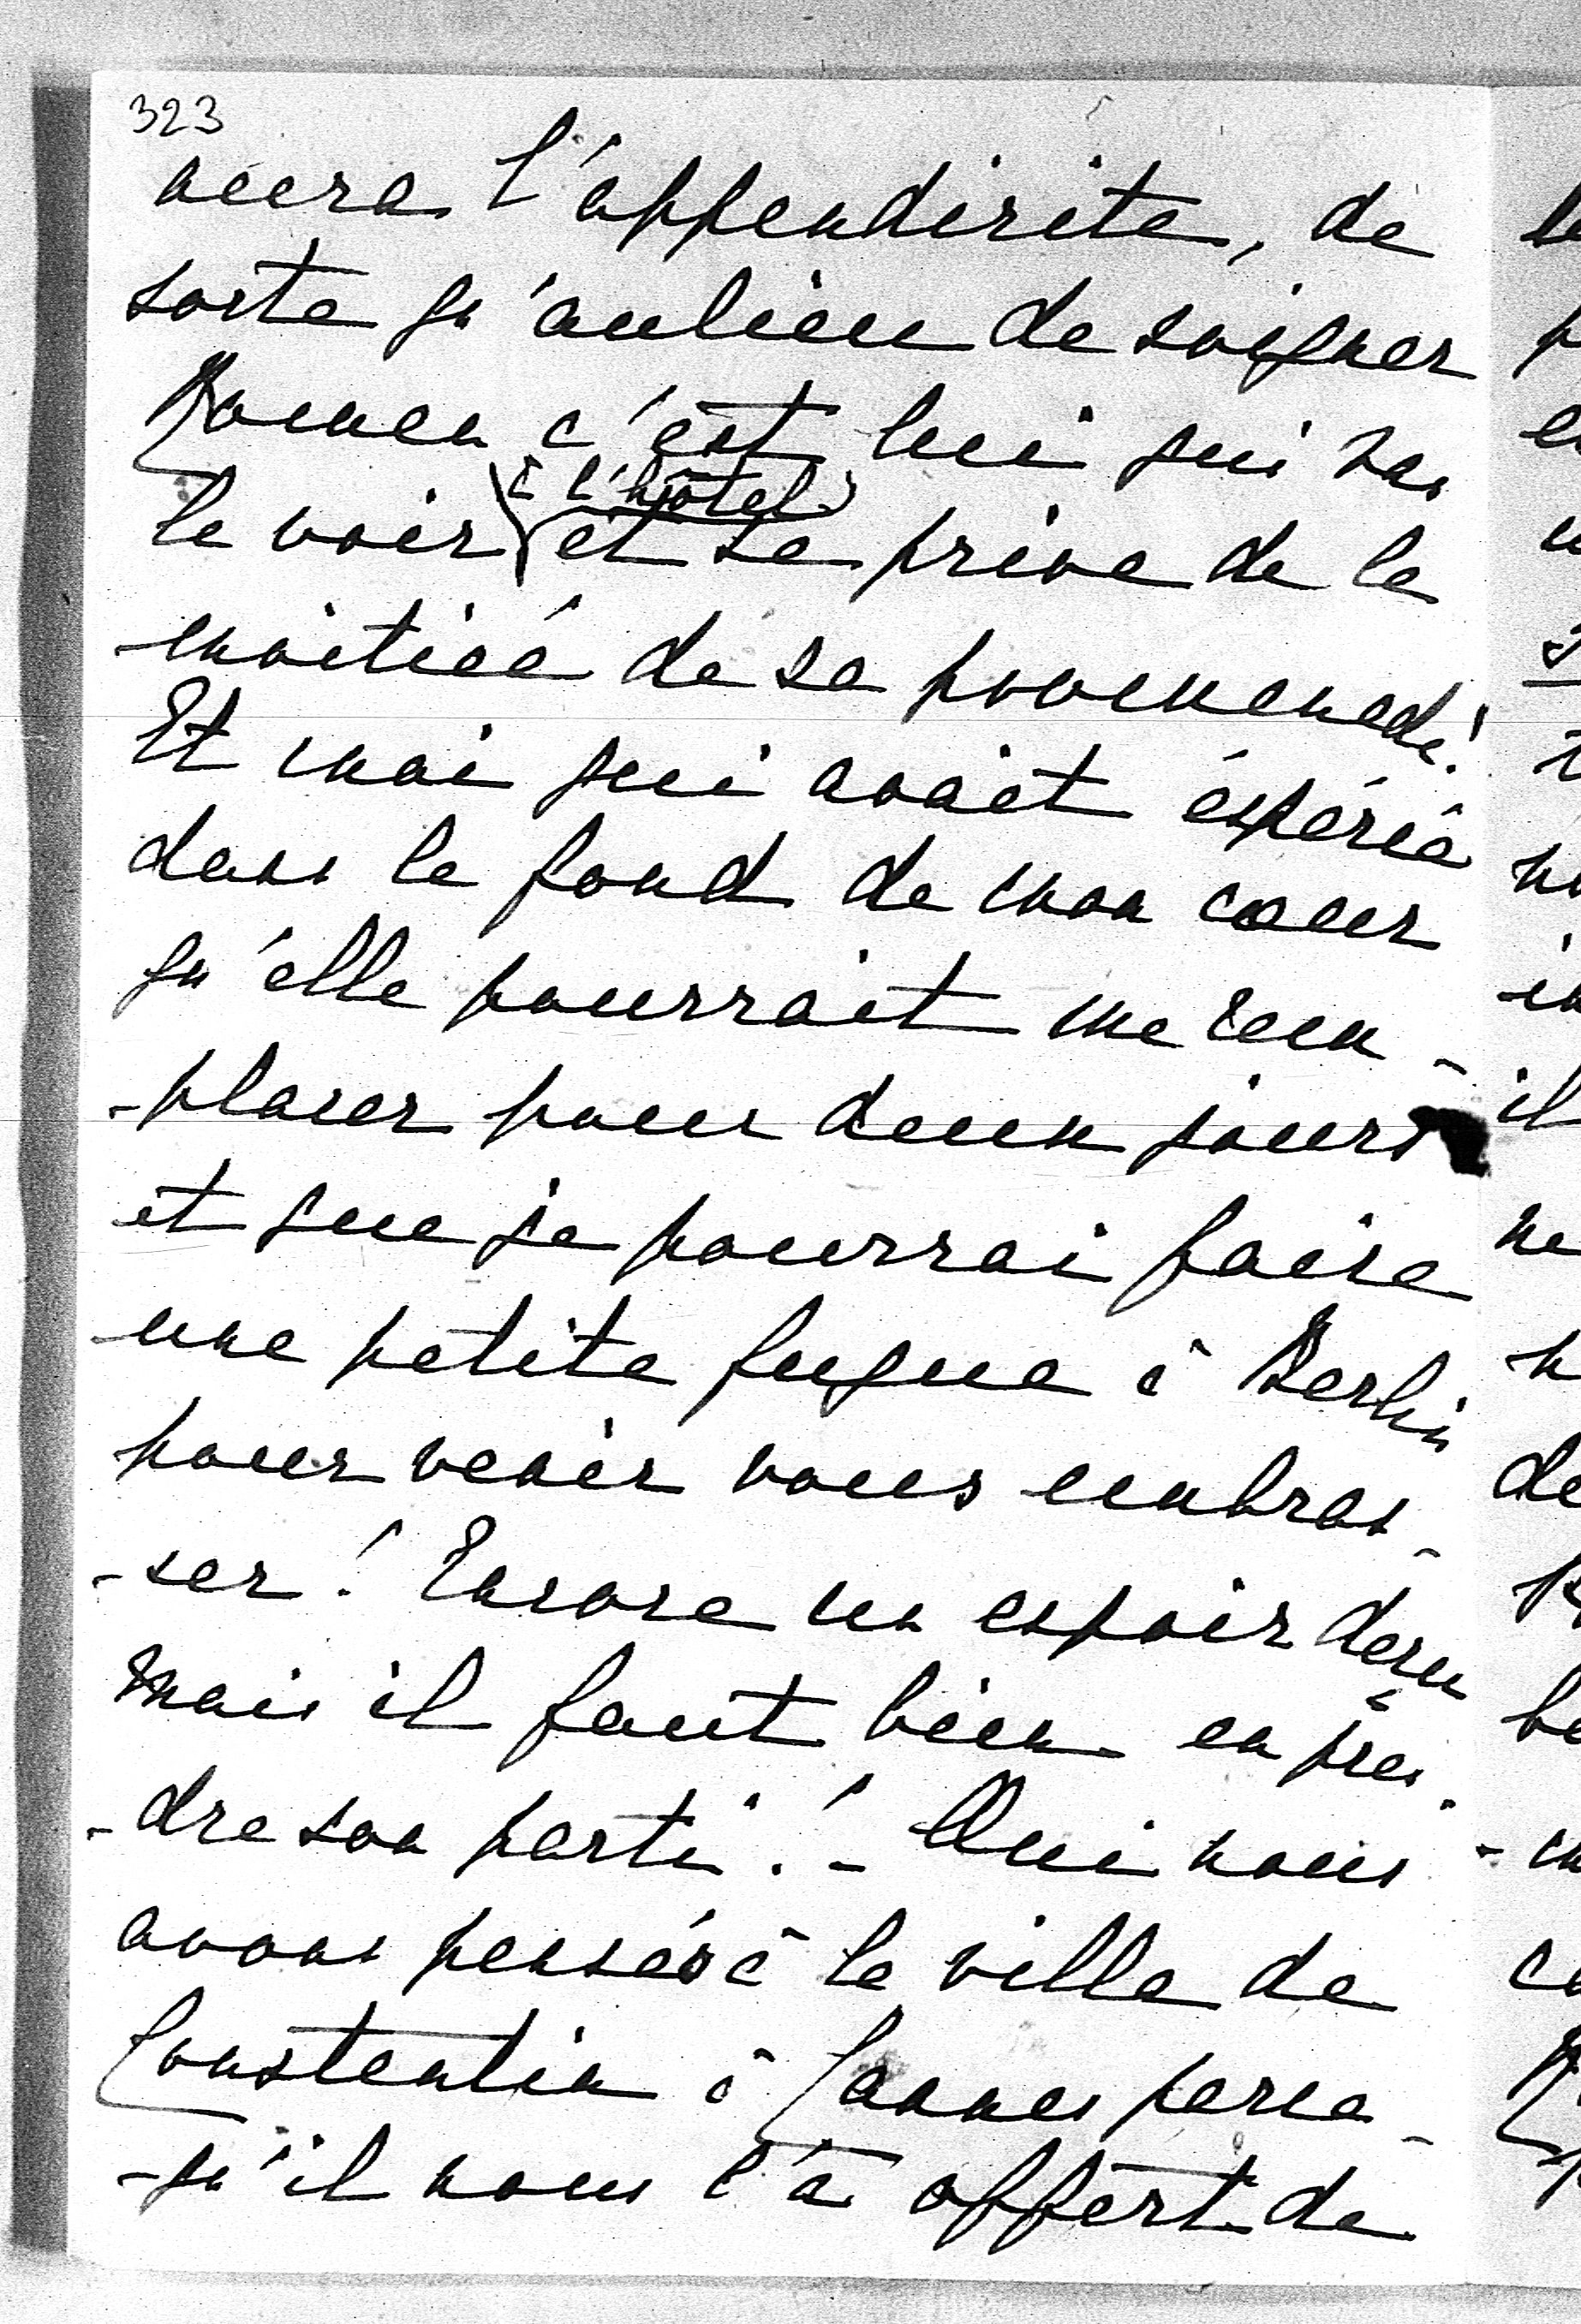 323
aura l'appendicite, de
sorte qu'aulieu de soigner
Roman c'est lui qui va
à l'hôtel
le voir et se prive de la
moitiéé de sa promenade!
Et moi qui avait éspérée
dans le fond de mon coeur
qu'elle pourrait me rem-
-placer pour deux jours
et que je pourrai faire
une petite fugue à Berlin
pour venir vous embras-
-ser! Encore un espoir deçu
mais il faut bien en pren-
-dre son parti! - Oui nous
avons pensés à la villa de
Constantin à Cannes parce-
-qu'il nous l'a offert de